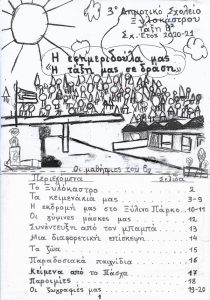 3º Δημοτικό Σχολείο
Ξυλοκάστρου
Τάξη Β²
Σχ. Έτος 2020-21
Η εφημεριδούλα μας
"Η τάξη μας σε δράση"
Οι μαθητές του Β2
Περιεχόμενα Σελίδα
Το Ξυλόκαστρο 2
Τα κειμενάκια μας 3-9
Η εκδρομή μας στο Ξύλινο Πάρκο 10-11
Οι γύψινες μάσκες μας 12
Συνέντευξη από τον μπαμπά 13
Μια διαφορετική επίσκεψη 14
Τα ζώα 15
Παραδοσιακά παιχνίδια 16
Κείμενα από το Πάσχα 17
Παροιμίες 18
Οι ζωγραφιές μας 19-20
1